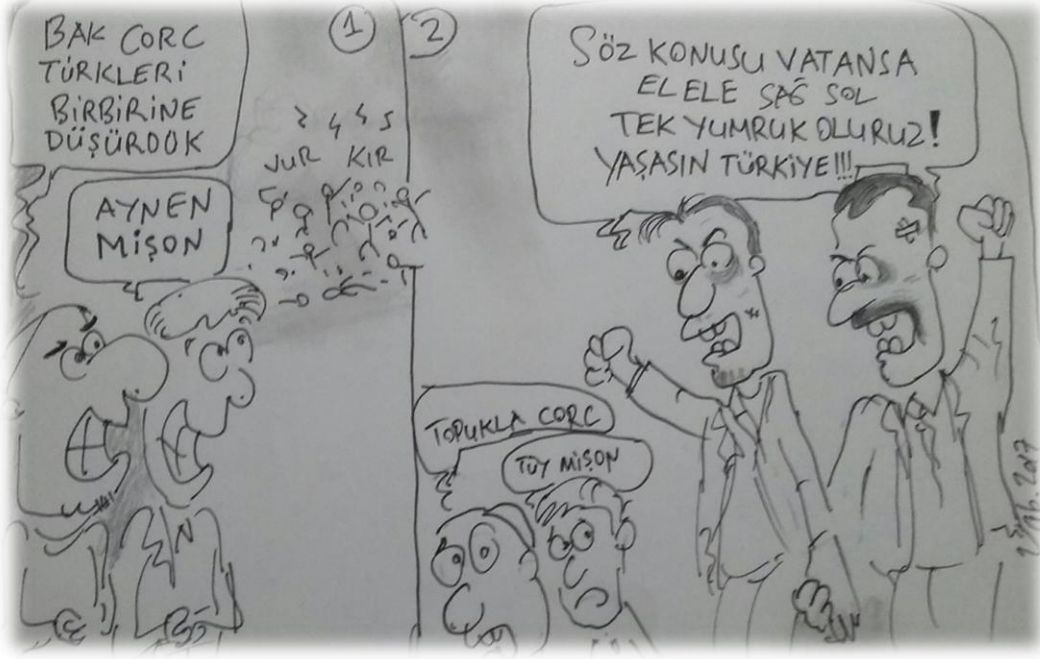 BAK CORC
TÜRKLERİ
BİRBİRİNE
DÜŞÜRDÜK
AYNEN
MİŞON
1
VUR KIR
2
SÖZ KONUSU VATANSA
EL ELE SAĞ SOL
TEK YUMRUK OLURUZ!
YAŞASIN TÜRKİYE!!!
TOPUKLA CORC
TÜY MİŞON